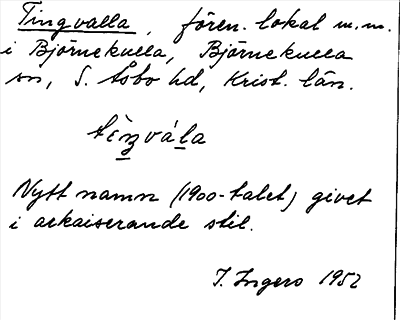 Tingvalla, fören. lokal m.m.
i Björnekulla, Björnekulla
sn, S. Åsbo hd, Krist. län.
tèŋvála
Nytt namn (1900-talet) givet
i arkaiserande stil.
I. Ingers 1952